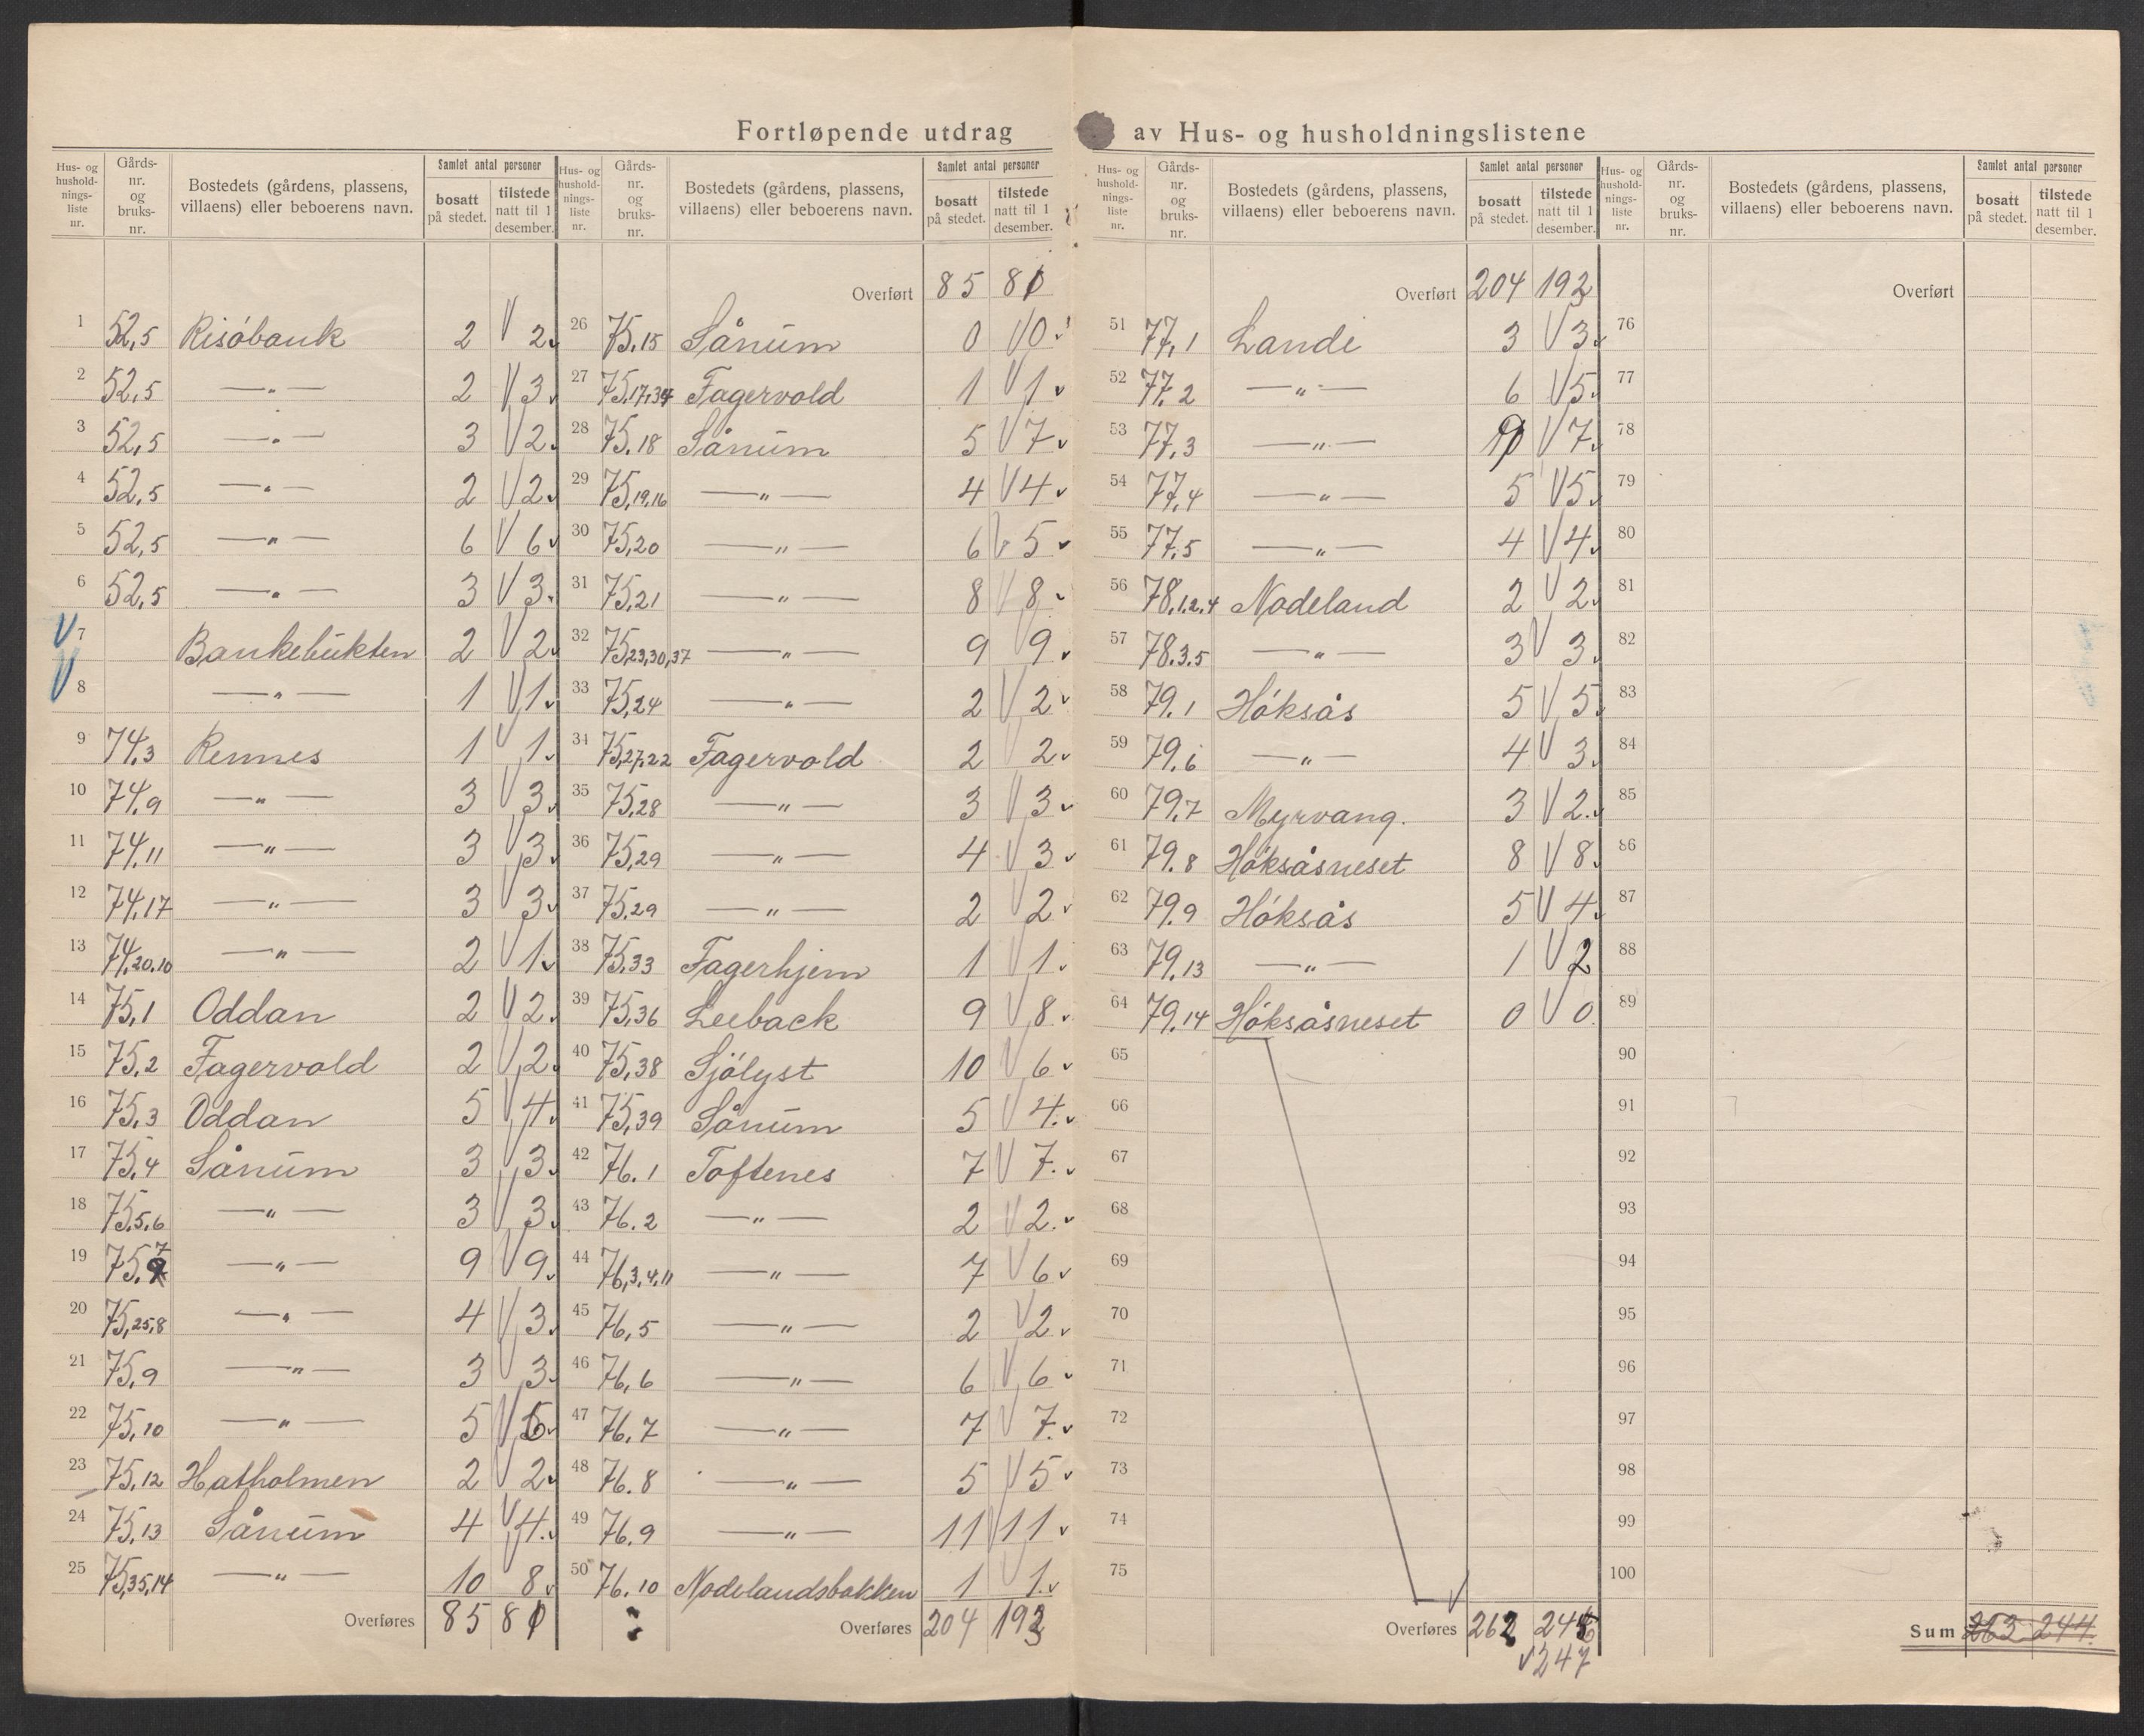 Fortløpende utdrag av Hus- og husholdningslistene
Hus- og hushold- nings- liste nr. | Gårds- nr. og bruks- nr. | Bostedets (gårdens, plassens, villaens) eller beboerens navn. | Samlet antal personer | bosatt på stedet. | tilstede natt til 1 desember.
1 52,5 Risøbank 2 V 2
2 52,5 —"— 2 V 3
3 52,5 —"— 3 V 2
4 52,5 —"— 2 V 2
5 52,5 —"— 6 V 6
6 52,5 —"— 3 V 3
V 7 Bankebukten 2 V 2
V 8 —"— 1 V 1
9 74,3 Rennes 1 V 1
10 74,9 —"— 3 V 3
11 74,11 —"— 3 V 3
12 74,17 —"— 3 V 3
13 74,20,10 —"— 2 V 1
14 75,1 Oddan 2 V 2
15 75,2 Fagervold 2 V 2
16 75,3 Oddan 5 V 4
17 75,4 Sånum 3 V 3
18 75,5,6 —"— 3 V 3
19 75,7 —"— 9 V 9
20 75,25,8 —"— 4 V 3
21 75,9 —"— 3 V 3
22 75,10 —"— 5 V
23 75,12 Hatholmen 2 V 2
24 75,13 Sånum 4 V 4
25 75,35,14 —"— 10 8
Overføres 85
Hus- og hushold- nings- liste nr. | Gårds- nr. og bruks- nr. | Bostedets (gårdens, plassens, villaens) eller beboerens navn. | Samlet antal personer | bosatt på stedet. | tilstede natt til 1 desember.
Overført 85
26 75,15 Sånum 0 V 0
27 75,17,34 Fagervold 1 V 1
28 75,18 Sånum 5 V 7
29 75,19,16 —"— 4 V 4
30 75,20 —"— 6 V 5
31 75,21 —"— 8 V 8
32 75,23,30,37 —"— 9 V 9
33 75,24 —"— 2 V 2
34 75,27,22 Fagervold 2 V 2
35 75,28 —"— 3 V 3
36 75,29 —"— 4 V 3
37 75,29 —"— 2 V 2
38 75,33 Fagerhjem 1 V 1
39 75,36 Leeback 9 V 8
40 75,38 Sjølyst 10 V 6
41 75,39 Sånum 5 V 4
42 76.1 Toftenes 7 V 7
43 76.2 —"— 2 V 2
44 76,3,4,11 —"— 7 V 6
45 76,5 —"— 2 V 2
46 76,6 —"— 6 V 6
47 76.7 —"— 7 V 7
48 76.8 —"— 5 V 5
49 76.9 —"— 11 V 11
50 76.10 Nodelandsbakken 1 V 1
Overføres 204
Hus- og hushold- nings- liste nr. | Gårds- nr. og bruks- nr. | Bostedets (gårdens, plassens, villaens) eller beboerens navn. | Samlet antal personer | bosatt på stedet. | tilstede natt til 1 desember.
Overført 204
51 77,1 Lande 3 V 3
52 77.2 —"— 6 V 5
53 77,3 —"— V 7
54 77,4 —"— 5 V 5
55 77.5 —"— 4 V 4
56 78,1,2,4 Nodeland 2 V 2
57 78.3.5 —"— 3 V 3
58 79.1 Høksås 5 V 5
59 79.6 —"— 4 V 3
60 79,7 Myrvang. 3 V 2
61 79.8 Høksåsneset 8 V 8
62 79.9 Høksås 5 V 4
63 79.13 —"— 1 V 2
64 79.14 Høksåsneset 0 V 0
65
66
67
68
69
70
71
72
73
74
75
Overføres 262
V 247
Hus- og hushold- nings- liste nr. | Gårds- nr. og bruks- nr. | Bostedets (gårdens, plassens, villaens) eller beboerens navn. | Samlet antal personer | bosatt på stedet. | tilstede natt til 1 desember.
Overført
76
77
78
79
80
81
82
83
84
85
86
87
88
89
90
91
92
93
94
95
96
97
98
99
100
Sum 263 244.